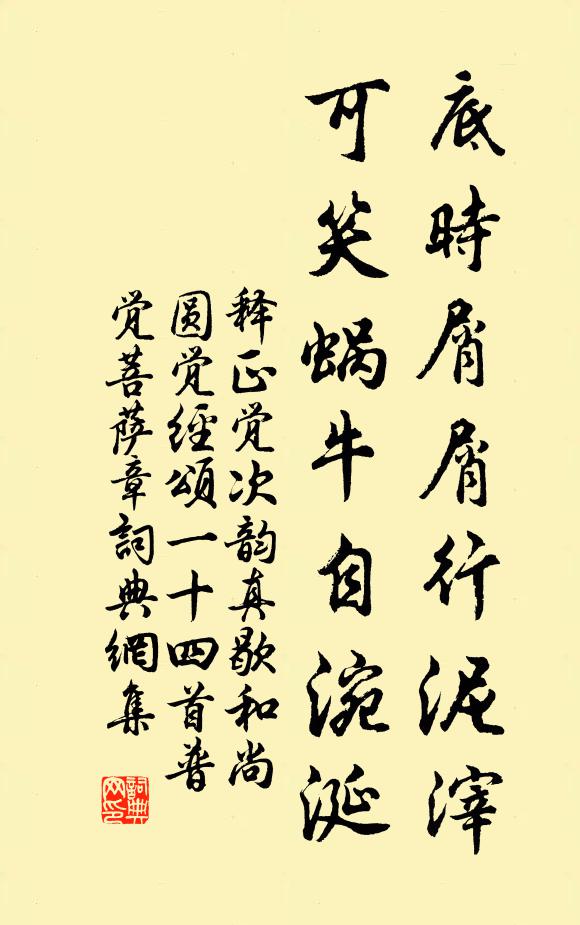 底時屑屑行泥滓
可笑蝸牛自涴涎
释正觉次韵真歇和尚
圆觉經頌一十四首普
觉菩萨章詞典網集
詞典网印